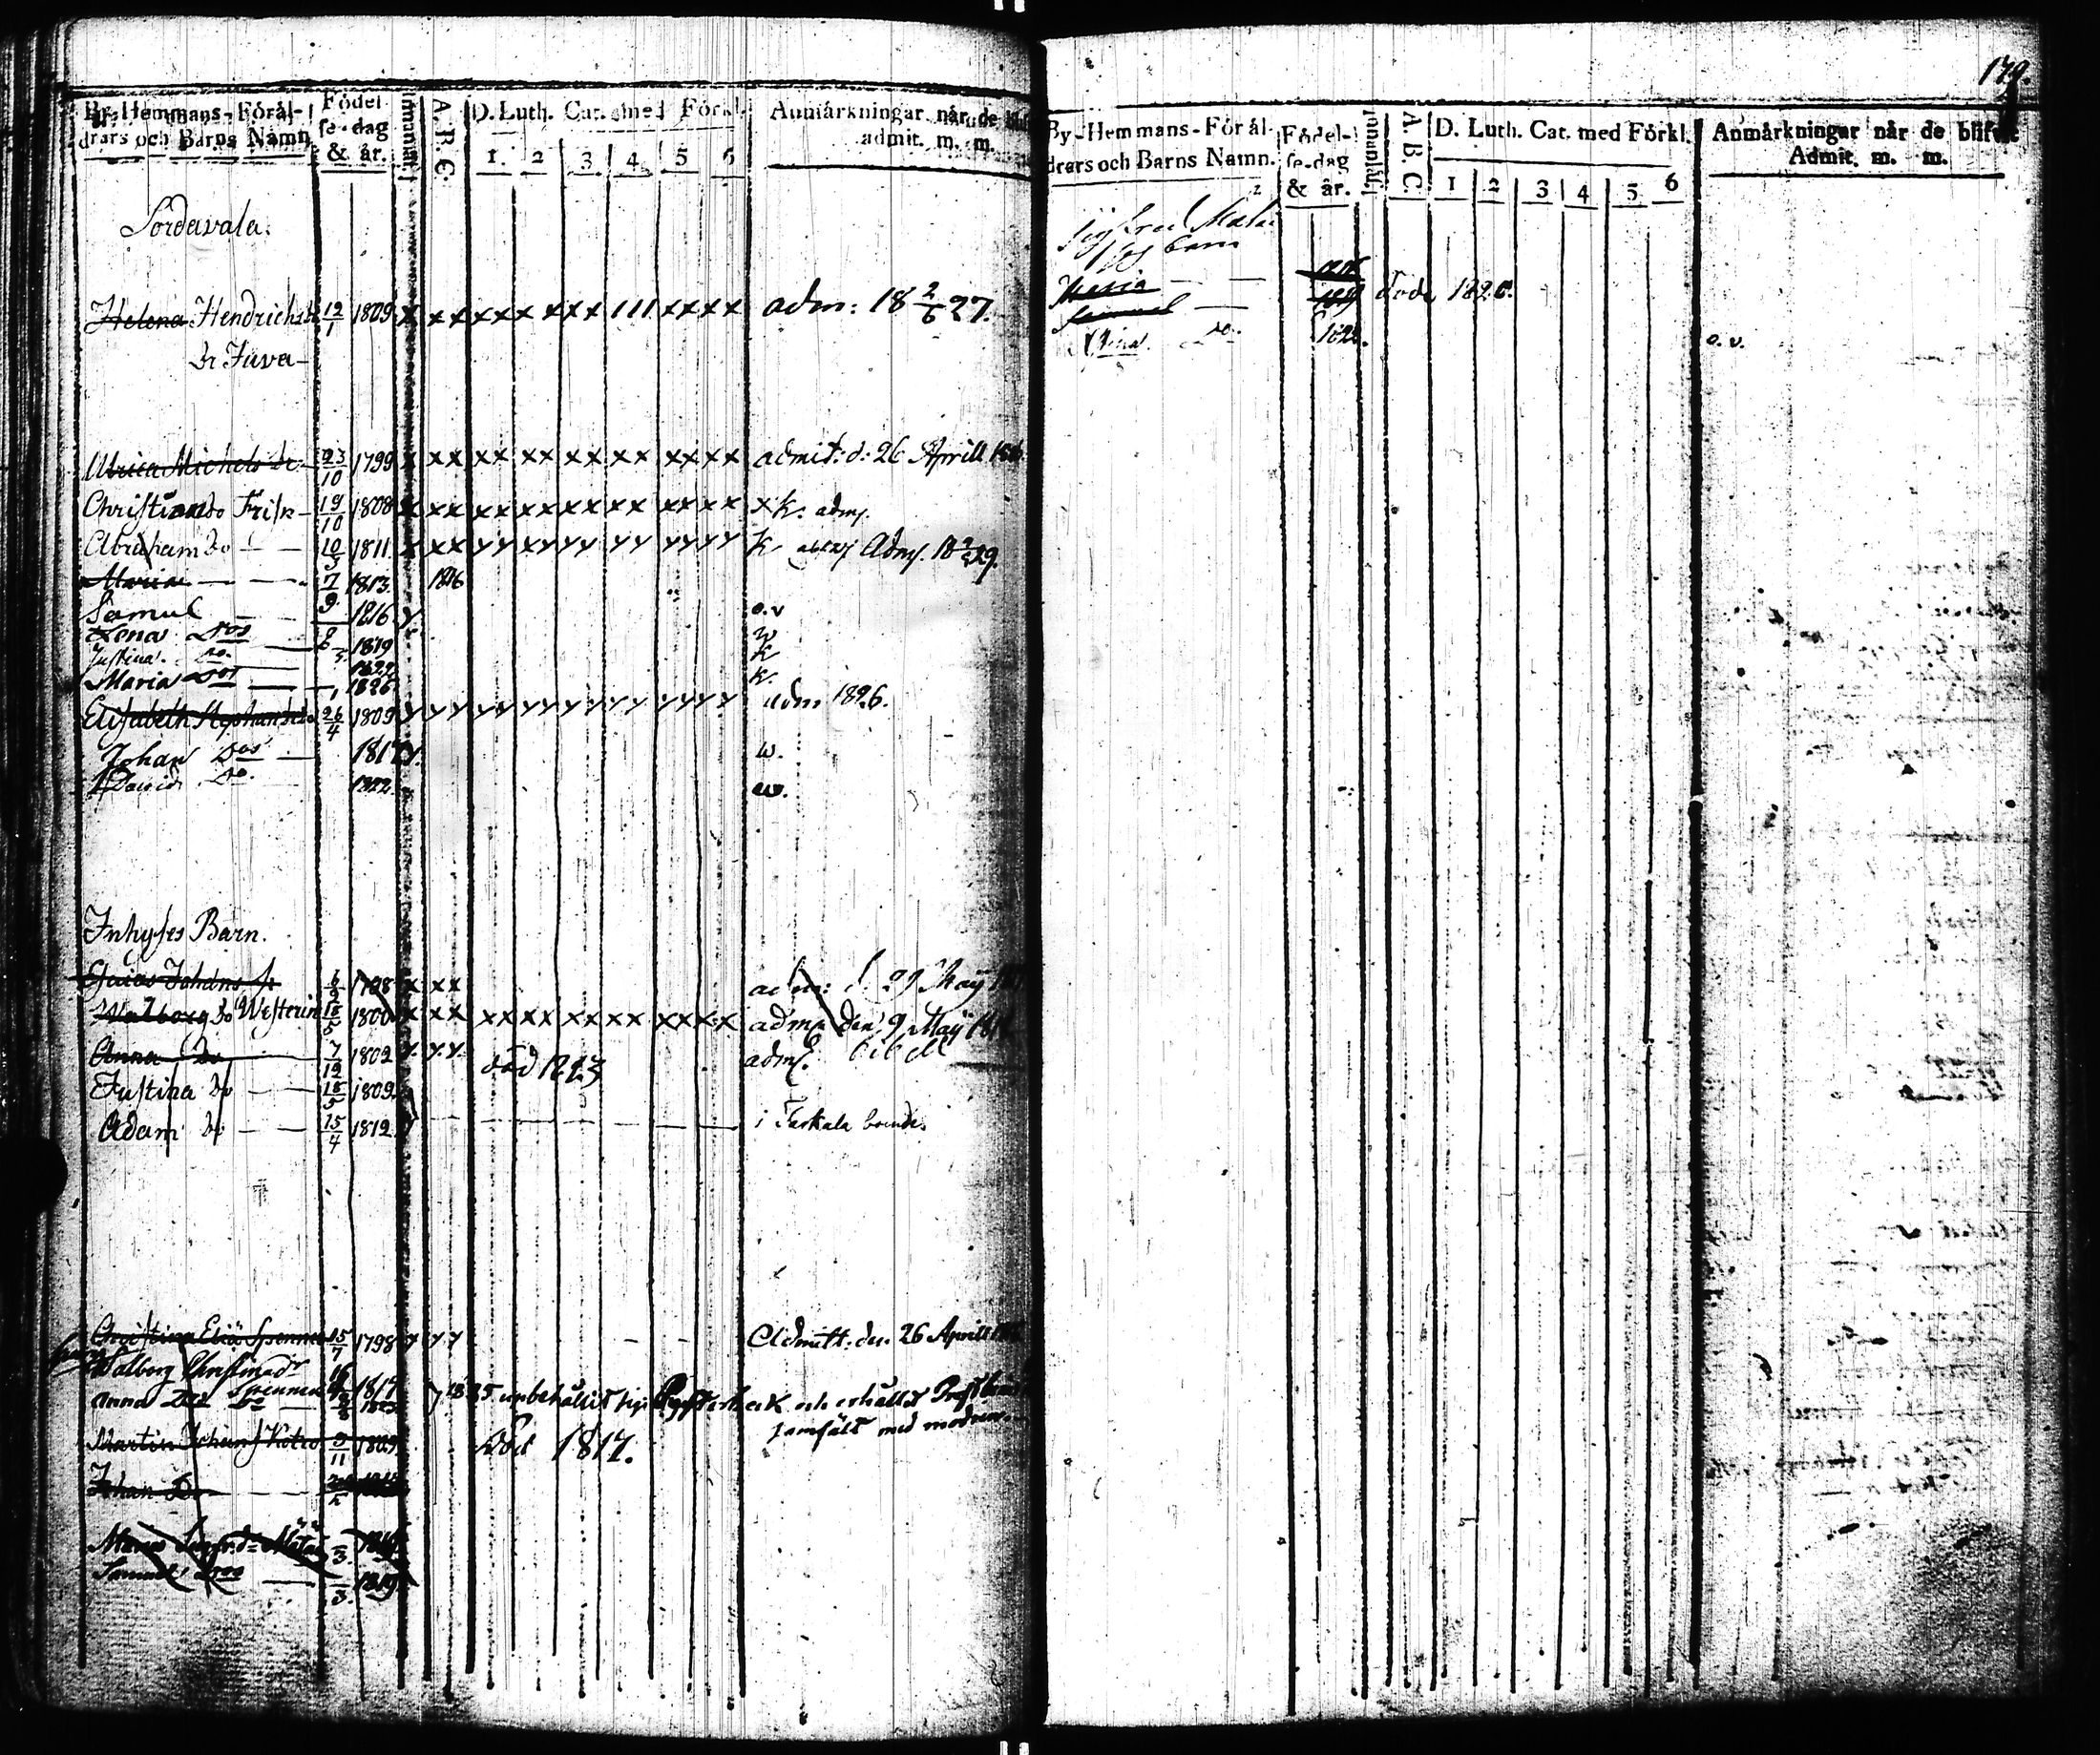 By-Hemmans-Förål-
drars och Barns Namn.
Födel-
se-dag
& år.
Innanläs.
A.B.C.
D. Luth. Cat. med Förkl.
1. 2 3 4 5 6
Anmärkningar när de blif
admit. m. m.
Sordavala.
Helena Hendrichsdr 12/1 1809 x xx xxx xxx III xxxx adm: 18 2/6 27.
Dr Juva
Ulrica Michelsdr 23/10 1799 x xx xx xx xx xx xxxx admit: d: 26 Aprill
Christian do Frisk 19/10 1808 x xx xx xx xx xx xxxx x k. adm.
Abraham do 10/3 1811 x xx yy xy yy yy yyyy k Adm. 18 29.
Maria 7/9 1813. 1816
Samuel 1816 y o.v
Lena Dos 1819 w
Justina. Do. 1822 k
Maria Dos 1826 k.
Elisabeth Stephansdr 26/4 1809 y yy yy yy yy yy yyyy adm 1826.
Johan Dos 1817 y. w.
David Do. 1822. w.
Inhyses Barn.
Esaias Johans S. 1798 x xx adm: d 29 Maij
Walborg do Westerin 18/5 1800 x xx xx xx xx xx xxxx adm. den 9 Maij
Anna Do 7/12 1802 y. y.y. död 1823 adm.
Justina do 18/5 1809
Adam do 15/4 1812. y i Tarkala
Christina Eliæ Spennare 15/7 1798 y yy Admitt: den 26 Aprill
Walborg Christinadr 16 1817
Anna Dos Do 1835 och erhållit
jemfält med modren
Martin Johans 9/11 1809. död 1817.
Johan Do
Maria Sigfr.dr 3.
Samuel Dos 3. 1819
179.
By-Hemmans-Förål-
drars och Barns Namn.
Födel-
se-dag
& år.
Innanläs.
A.B.C.
D. Luth. Cat. med Förkl.
1 2 3 4 5 6
Anmärkningar när de blifvit
Admit. m. m.
Sigfred
Barn
Maria död 1820.
Samuel 1819
Stina. Do. 1822. o.v.